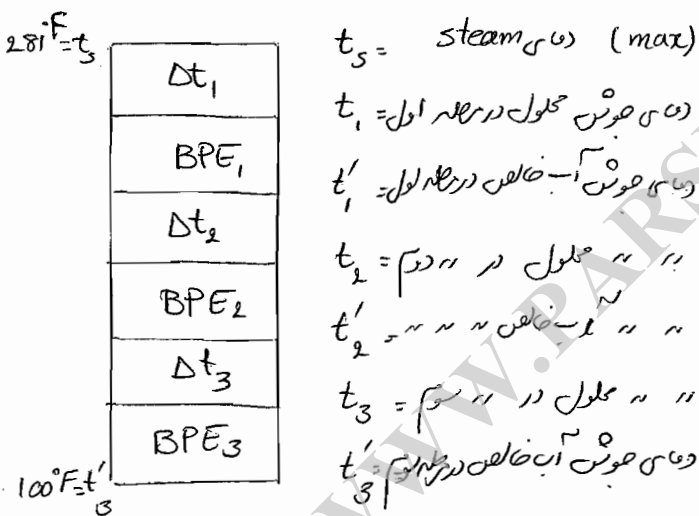 281°F=tₛ
Δt₁
BPE₁
Δt₂
BPE₂
Δt₃
BPE₃
100°F=t′₃
tₛ = دمای steam (max)
t₁ = دمای جوش محلول در مرحله اول
t′₁ = دمای جوش آب خالص در مرحله اول
t₂ = " " محلول در " دوم
t′₂ = " " آب خالص " " "
t₃ = " " محلول در " سوم
t′₃ = دمای جوش آب خالص در مرحله سوم
WWW.PARS